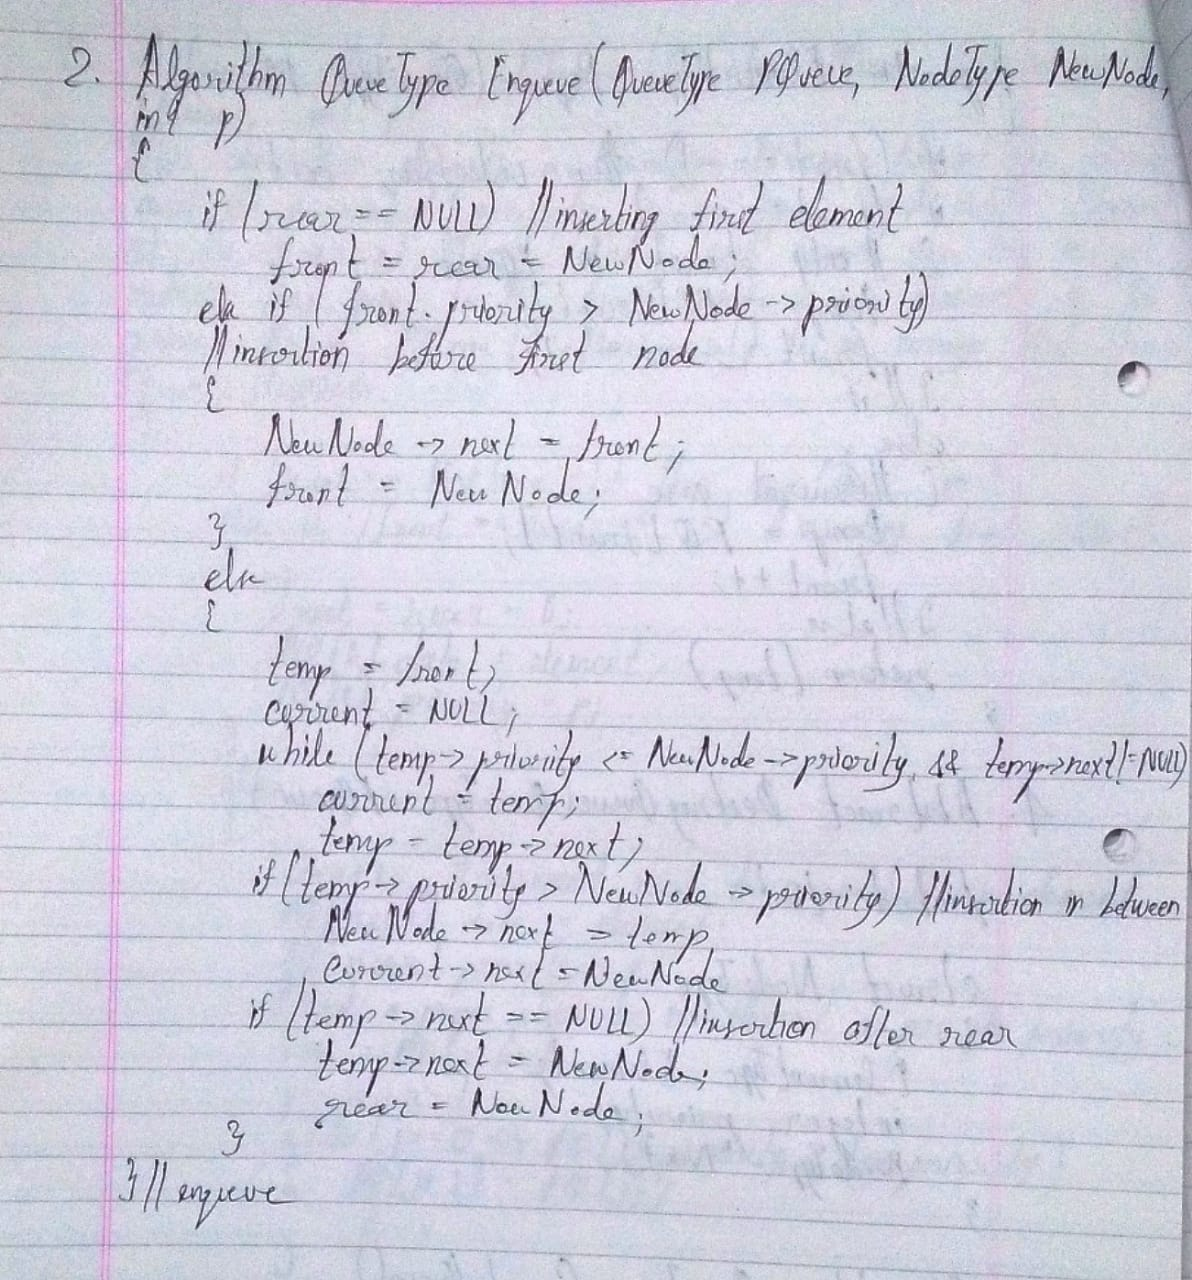 2. Algorithm QueueType Enqueue(QueueType PQueue, NodeType NewNode,
int p)
{
if (rear == NULL) //inserting first element
front = rear = NewNode;
else if (front.priority > NewNode -> priority)
//insertion before first node
{
NewNode -> next = front;
front = NewNode;
}
else
{
temp = front;
current = NULL;
while (temp -> priority <= NewNode -> priority && temp->next != NULL)
current = temp;
temp = temp -> next;
if (temp -> priority > NewNode -> priority) //insertion in between
NewNode -> next = temp
current -> next = NewNode
if (temp -> next == NULL) //insertion after rear
temp -> next = NewNode;
rear = NewNode;
}
} // enqueue